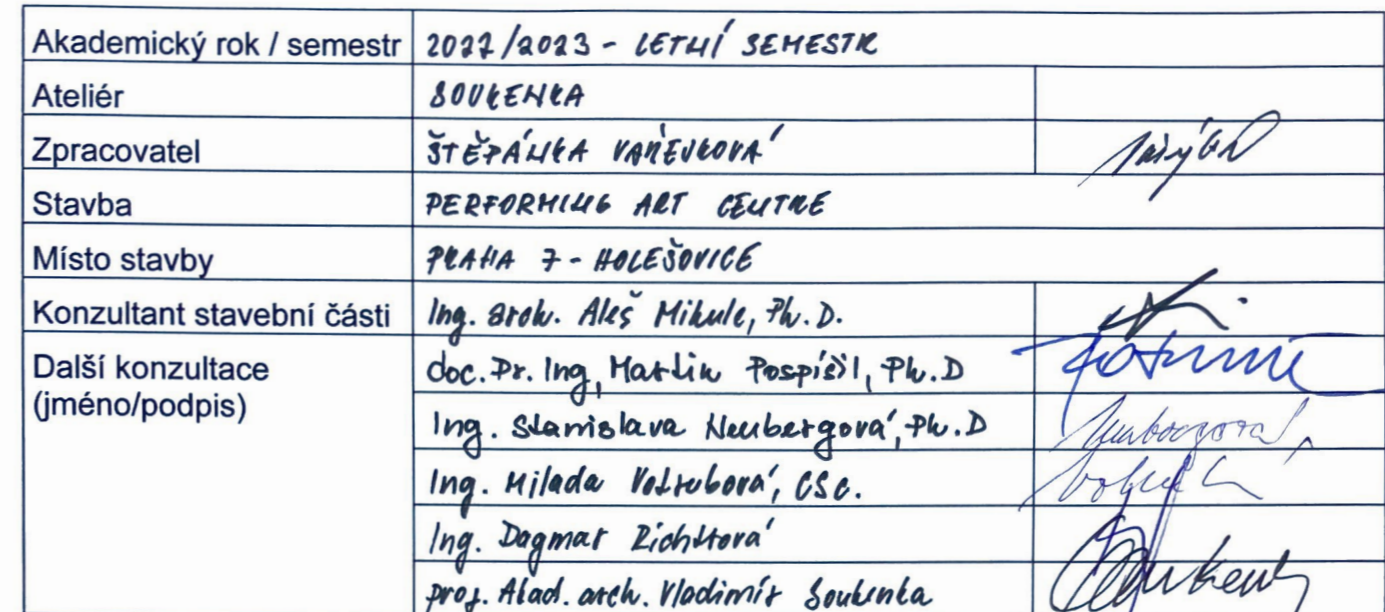 Akademický rok / semestr 2022/2023 - LETNÍ SEMESTR
Ateliér SOUKENKA
Zpracovatel ŠTĚPÁNKA VAŇEJKOVÁ
Stavba PERFORMING ART CENTRE
Místo stavby PRAHA 7 - HOLEŠOVICE
Konzultant stavební části Ing. arch. Aleš Mikule, Ph.D.
Další konzultace doc. Dr. Ing, Martin Pospíšil, Ph.D
(jméno/podpis)
Ing. Stanislava Neubergová, Ph.D
Ing. Milada Votrubová, CSc.
Ing. Dagmar Richtrová
prof. Akad. arch. Vladimír Soukenka